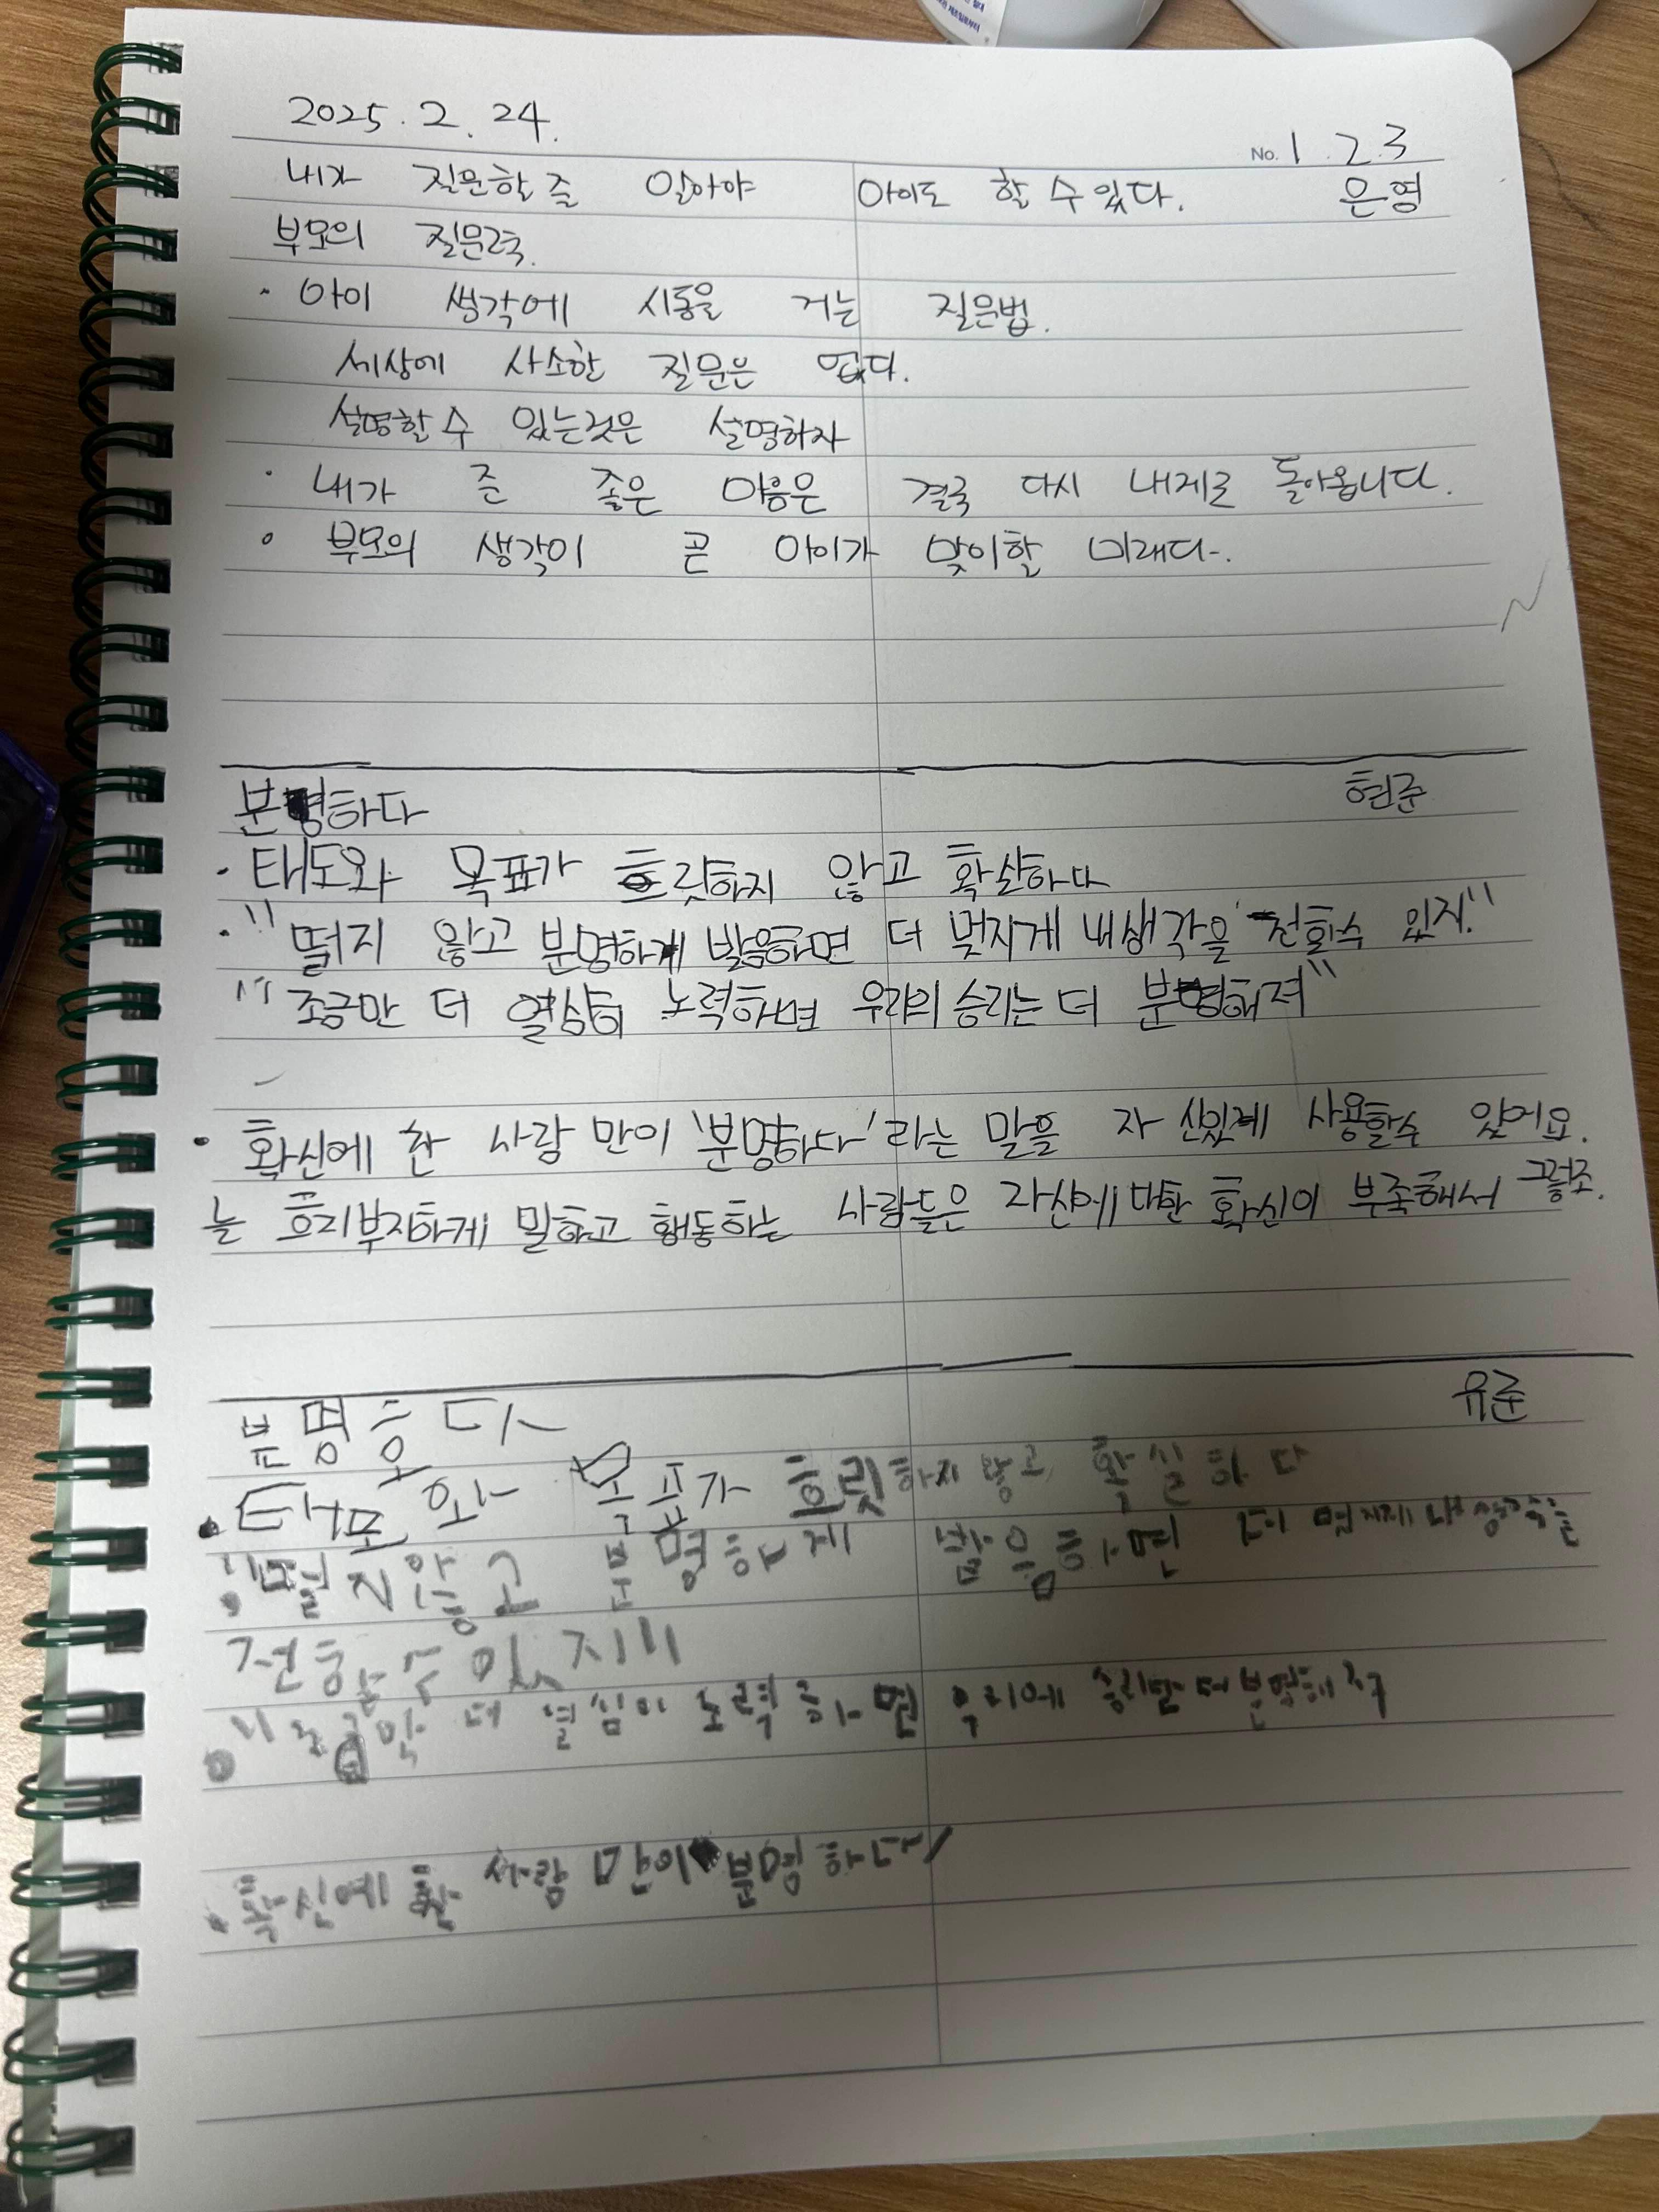 2025. 2. 24.
No. 1. 2. 3
내가 질문할 줄 알아야 아이도 할 수 있다. 은영
부모의 질문력.
· 아이 생각에 시동을 거는 질문법.
세상에 사소한 질문은 없다.
설명할 수 있는것은 설명하자
· 내가 준 좋은 마음은 결국 다시 내게로 돌아옵니다.
· 부모의 생각이 곧 아이가 맞이할 미래다.
분명하다 현준
· 태도와 목표가 흐릿하지 않고 확실하다
· "떨지 않고 분명하게 발음하면 더 멋지게 내생각을 전할수 있지."
"조금만 더 열심히 노력하면 우리의 승리는 더 분명해져"
· 확신에 찬 사람 만이 '분명하다'라는 말을 자신있게 사용할수 있어요.
늘 흐리부지하게 말하고 행동하는 사람들은 자신에 대한 확신이 부족해서 그렇죠.
유준
분명흐다
· 태도와 목표가 흐릿하지 않고 확실하다
· "떨지 않고 분명하게 발음하면 더 멋지게 내 생각을
전할 수 있지"
· " 더 열심이 노력하면 우리에 더 분명해
· 확신에 사람 만이 분명하다